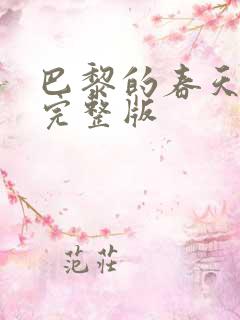 巴黎的春天
完整版
范莊